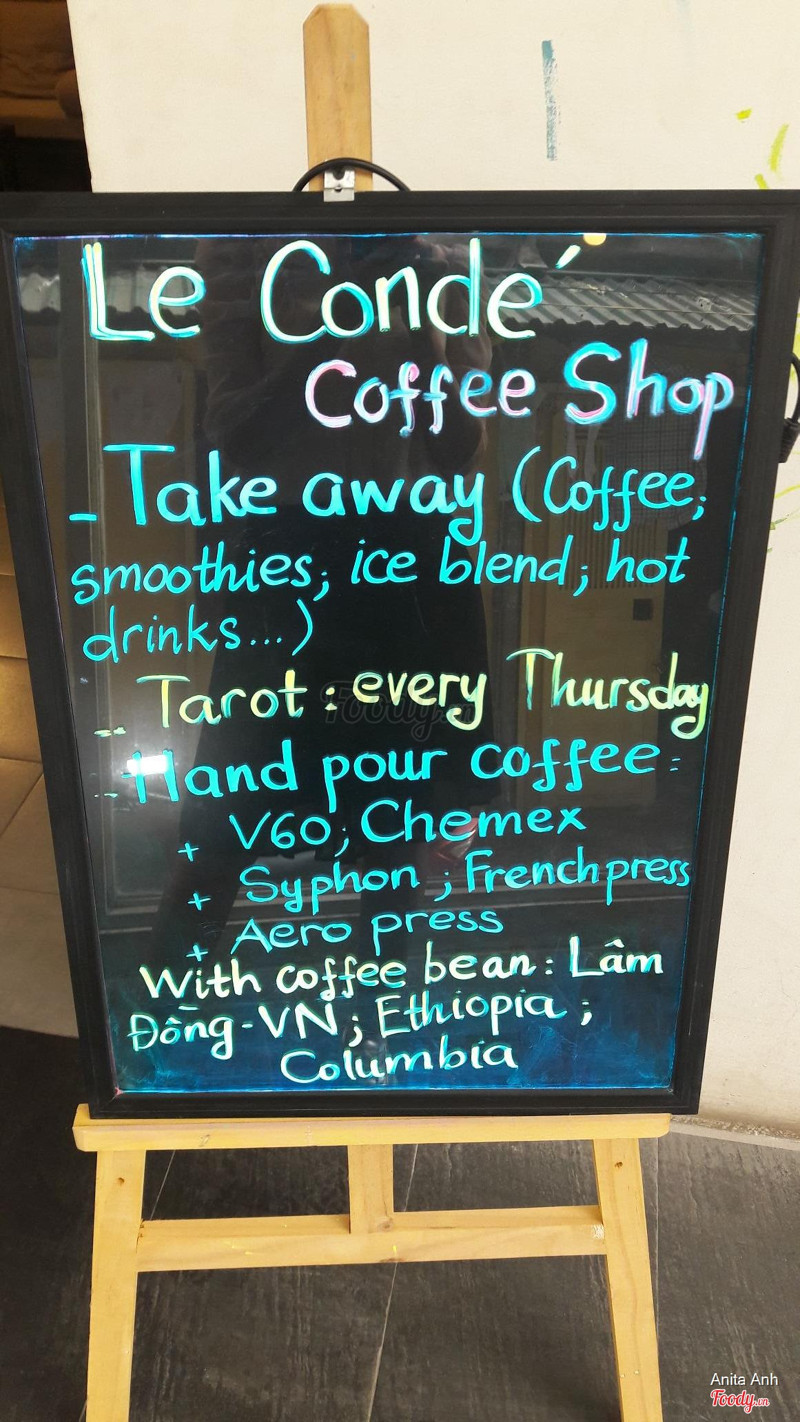 Le Condé
Coffee Shop
- Take away (Coffee;
smoothies; ice blend; hot
drinks...)
-- Tarot : every Thursday
- Hand pour coffee :
+ V60; Chemex
+ Syphon ; French press
+ Aero press
With coffee bean : Lâm
Đồng - VN ; Ethiopia ;
Columbia
Foody.vn
Anita Anh
Foody.vn